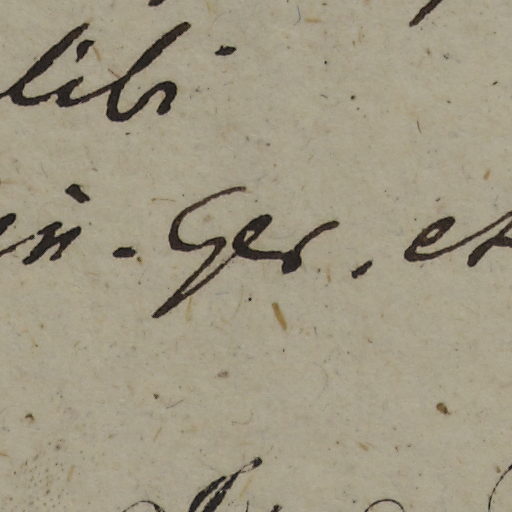 libi
in. Ger. et